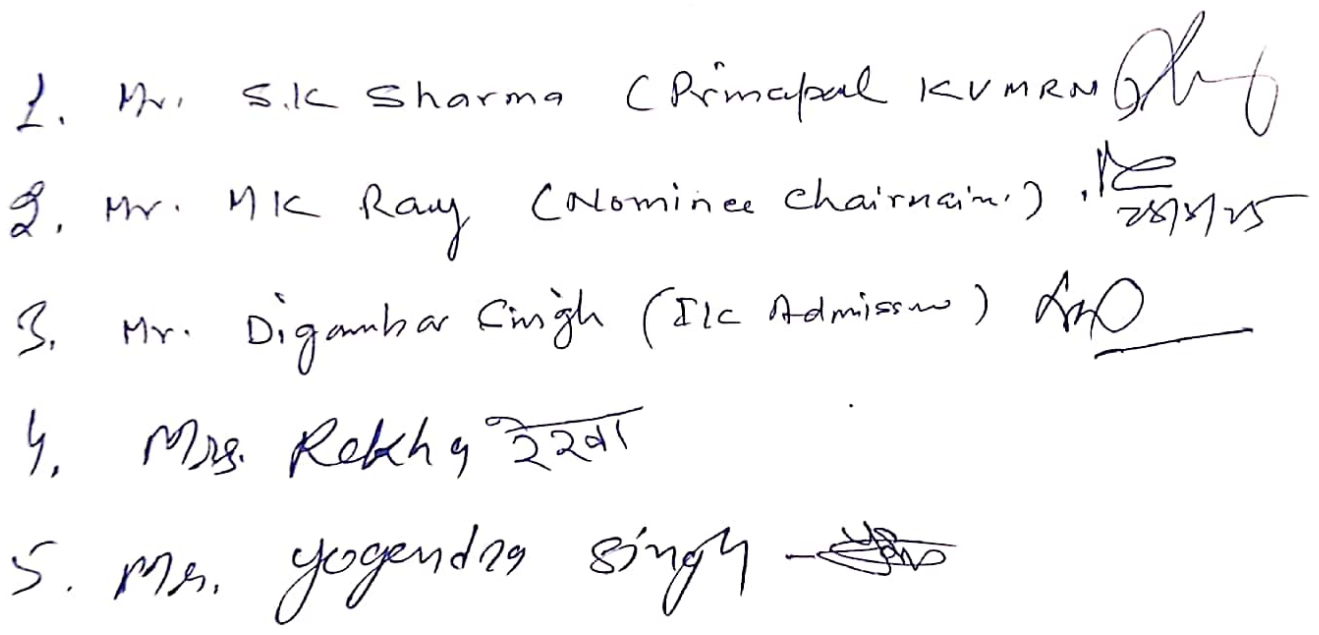 1. Mr. S.K Sharma (Principal KVMRN)
2. Mr. MK Ray (Nominee Chairman.)
3. Mr. Digambar Singh (I/C Admission)
4. Mrs. Rekha रेखा
5. Mr. Yogendra Singh